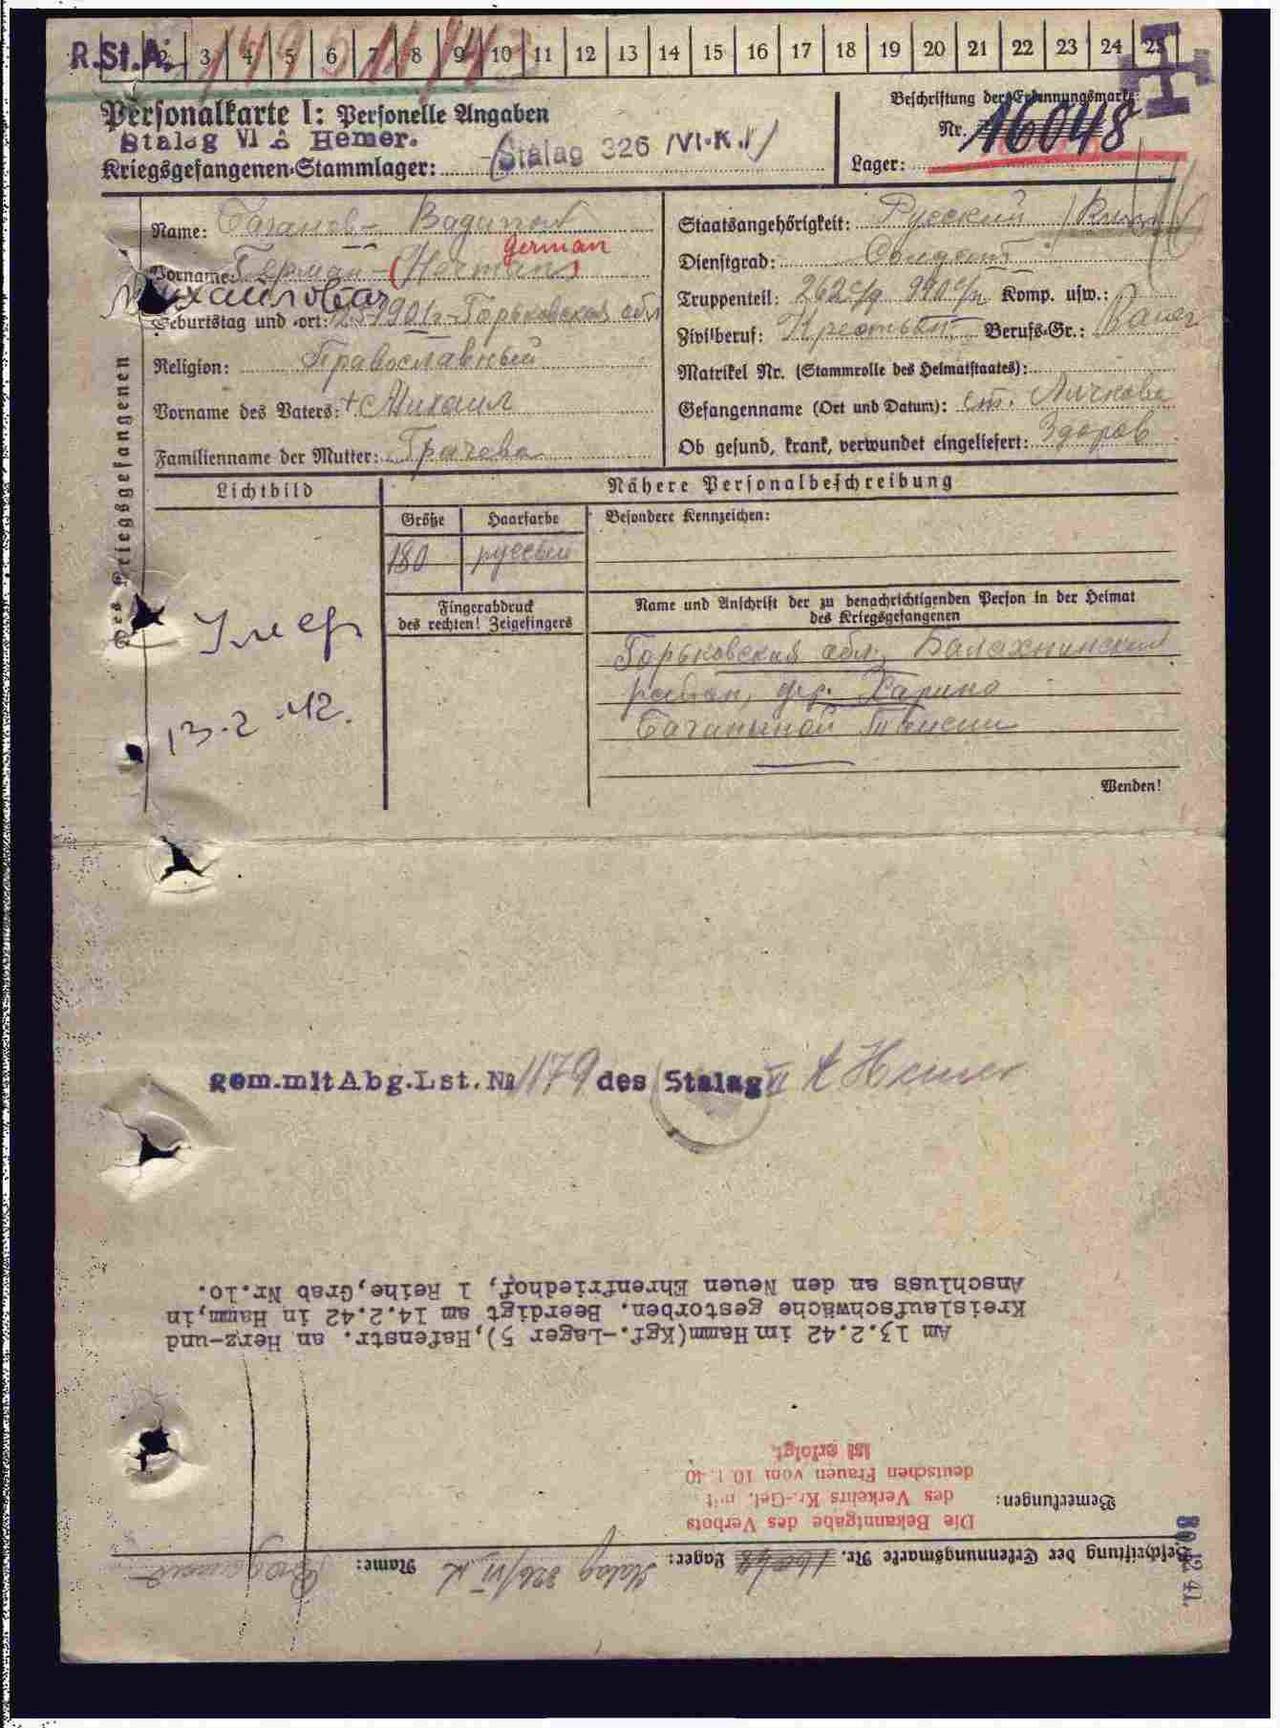 R.St.A. 2 3 4 5 6 7 8 9 10 11 12 13 14 15 16 17 18 19 20 21 22 23 24 25
Personalkarte I: Personelle Angaben
Beschriftung der Erkennungsmarke:
Stalag VI A Hemer.
Nr. 16048
Kriegsgefangenen-Stammlager: Stalag 326 /VI-K./
Lager:
Des Kriegsgefangenen
Name:
Staatsangehörigkeit: Русский
German
Vorname: Герман - (Hermann)
Dienstgrad: Солдат
Михайлович
Truppenteil: 262 с/д 940 с/п Komp. usw.:
Geburtstag und -ort: Горьковская обл
Zivilberuf: Крестьян. Berufs-Gr.: Bauer
Religion: Православный
Matrikel Nr. (Stammrolle des Heimatstaates):
Vorname des Vaters: + Михаил
Gefangennahme (Ort und Datum): ст. Лычково
Familienname der Mutter: Грачева
Ob gesund, krank, verwundet eingeliefert: Здоров
Lichtbild
Nähere Personalbeschreibung
Größe Haarfarbe
Besondere Kennzeichen:
180 русый
Fingerabdruck
des rechten! Zeigefingers
Name und Anschrift der zu benachrichtigenden Person in der Heimat
des Kriegsgefangenen
Умер
13-2-42.
Горьковская обл, Балахнинский
район, дер. Харино
Wenden!
gem.mit Abg.Lst.Nr 1179 des Stalag VI A Hemer
Am 13.2.42 im Hamm(Kgf.-Lager 5),Hafenstr. an Herz-und
Kreislaufschwäche gestorben. Beerdigt am 14.2.42 in Hamm,in
Anschluss an den Neuen Ehrenfriedhof, 1 Reihe,Grab Nr.10.
Bemerkungen:
Die Bekanntgabe des Verbots
des Verkehrs Kr.-Gef. mit
deutschen Frauen vom 10.1.40
ist erfolgt.
Beschriftung der Erkennungsmarke Nr. 16048 Lager: Stalag 326/VI K Name:
12 41.